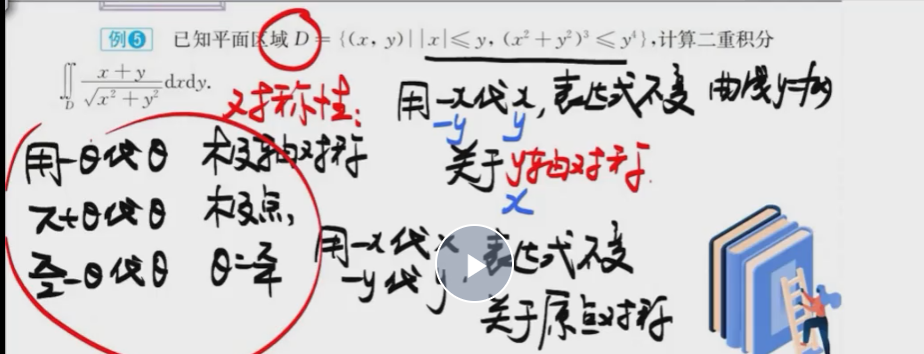 例5 已知平面区域 D = {(x, y)||x|≤y, (x²+y²)³≤y⁴},计算二重积分
∬_D (x+y)/√(x²+y²) dxdy.
对称性:
用-x代x,表达式不变
-y y
关于y轴对称.
x
用-θ代θ 极轴对称
π+θ代θ 极点,
π/2-θ代θ θ=π/4
用-x代x,表达式不变
-y代y
关于原点对称